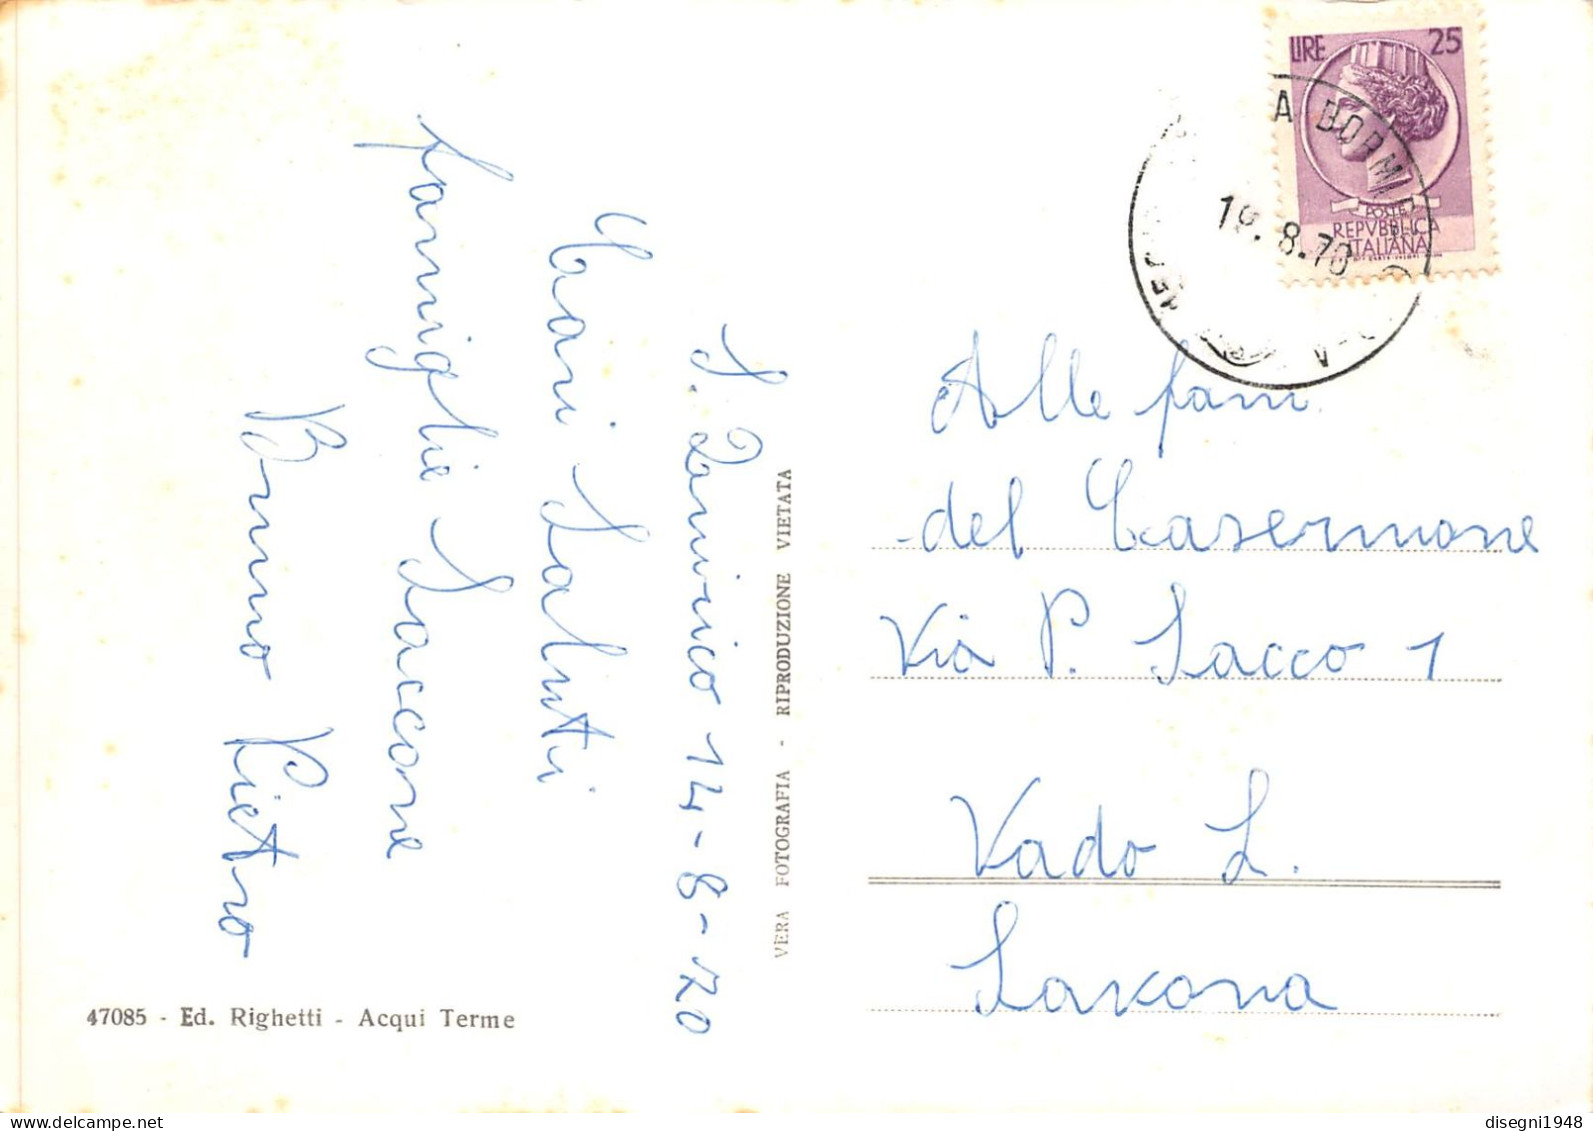 S. Quirico 14-8-70
Cari Saluti
famiglie Saccone
Bruno Pietro
47085 - Ed. Righetti - Acqui Terme
VERA FOTOGRAFIA - RIPRODUZIONE VIETATA
LIRE 25
POSTE
REPVBBLICA
ITALIANA
A BORMI
19.8.70
Alle fam.
del Casermone
Via P. Sacco 1
Vado L.
Savona
disegni1948